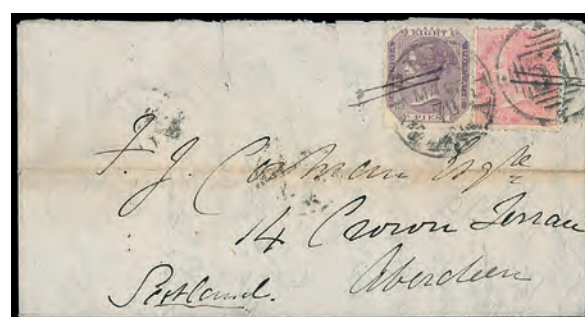 EIGHT
PIES
F. J. Cosman Esqre
14 Crown Terrace
Aberdeen
Scotland.